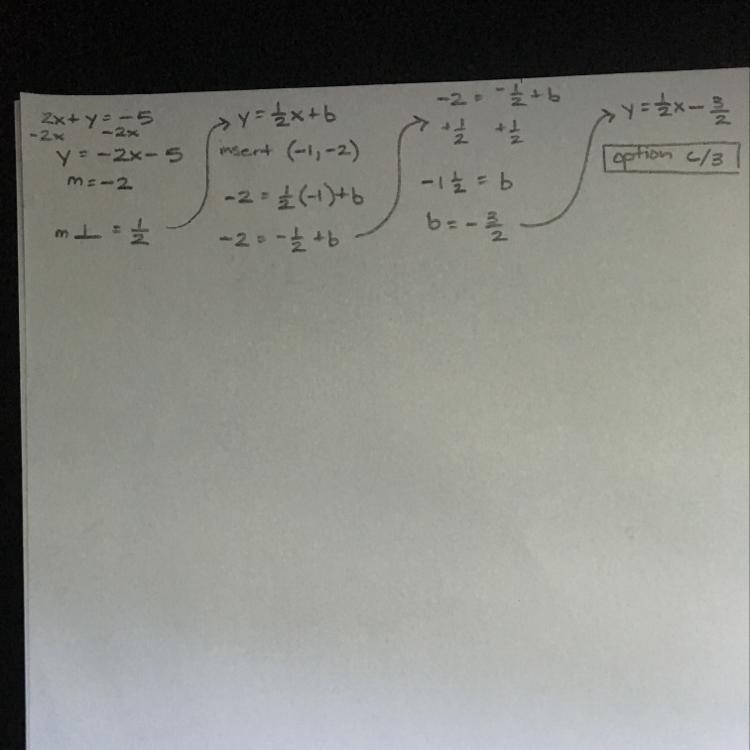 2x + y = -5
-2x -2x
y = -2x - 5
m = -2
m⊥ = 1/2
y = 1/2x + b
insert (-1, -2)
-2 = 1/2(-1) + b
-2 = -1/2 + b
-2 = -1/2 + b
+1/2 +1/2
-1 1/2 = b
b = -3/2
y = 1/2x - 3/2
option c/3